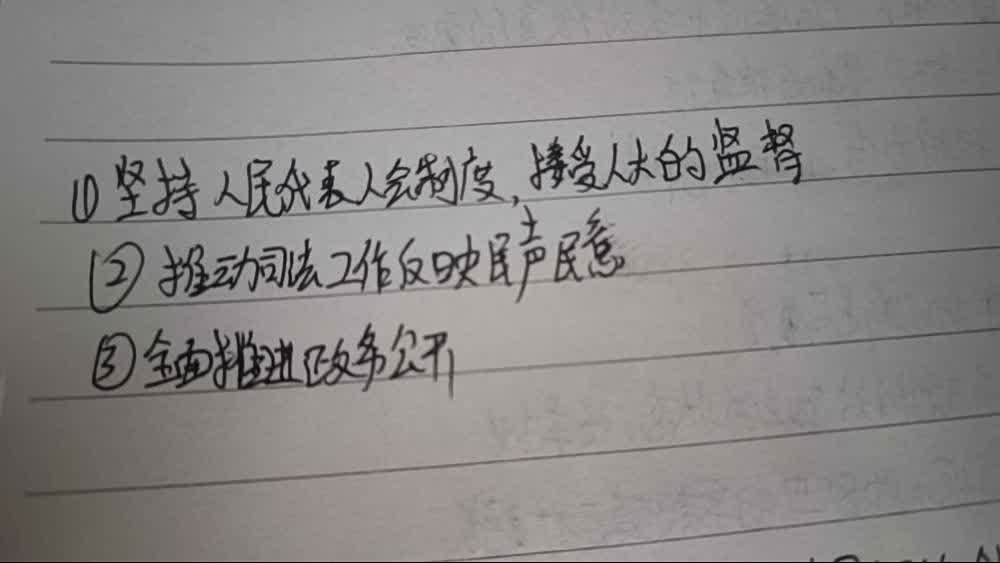 ①坚持人民代表人会制度,接受人大的监督
②推动司法工作反映民声民意
③全面推进政务公开